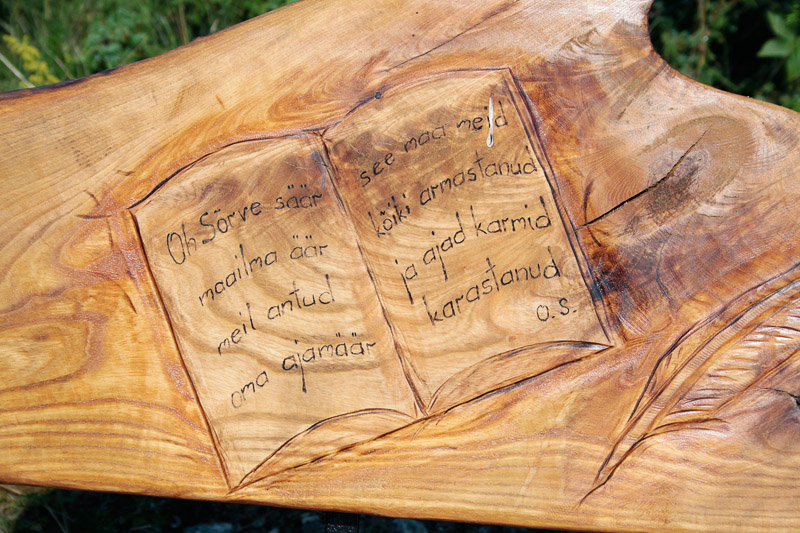 Oh Sõrve säär
maailma äär
meil antud
oma ajamäär
see maa meid
kõiki armastanud
ja ajad karmid
karastanud
O.S.